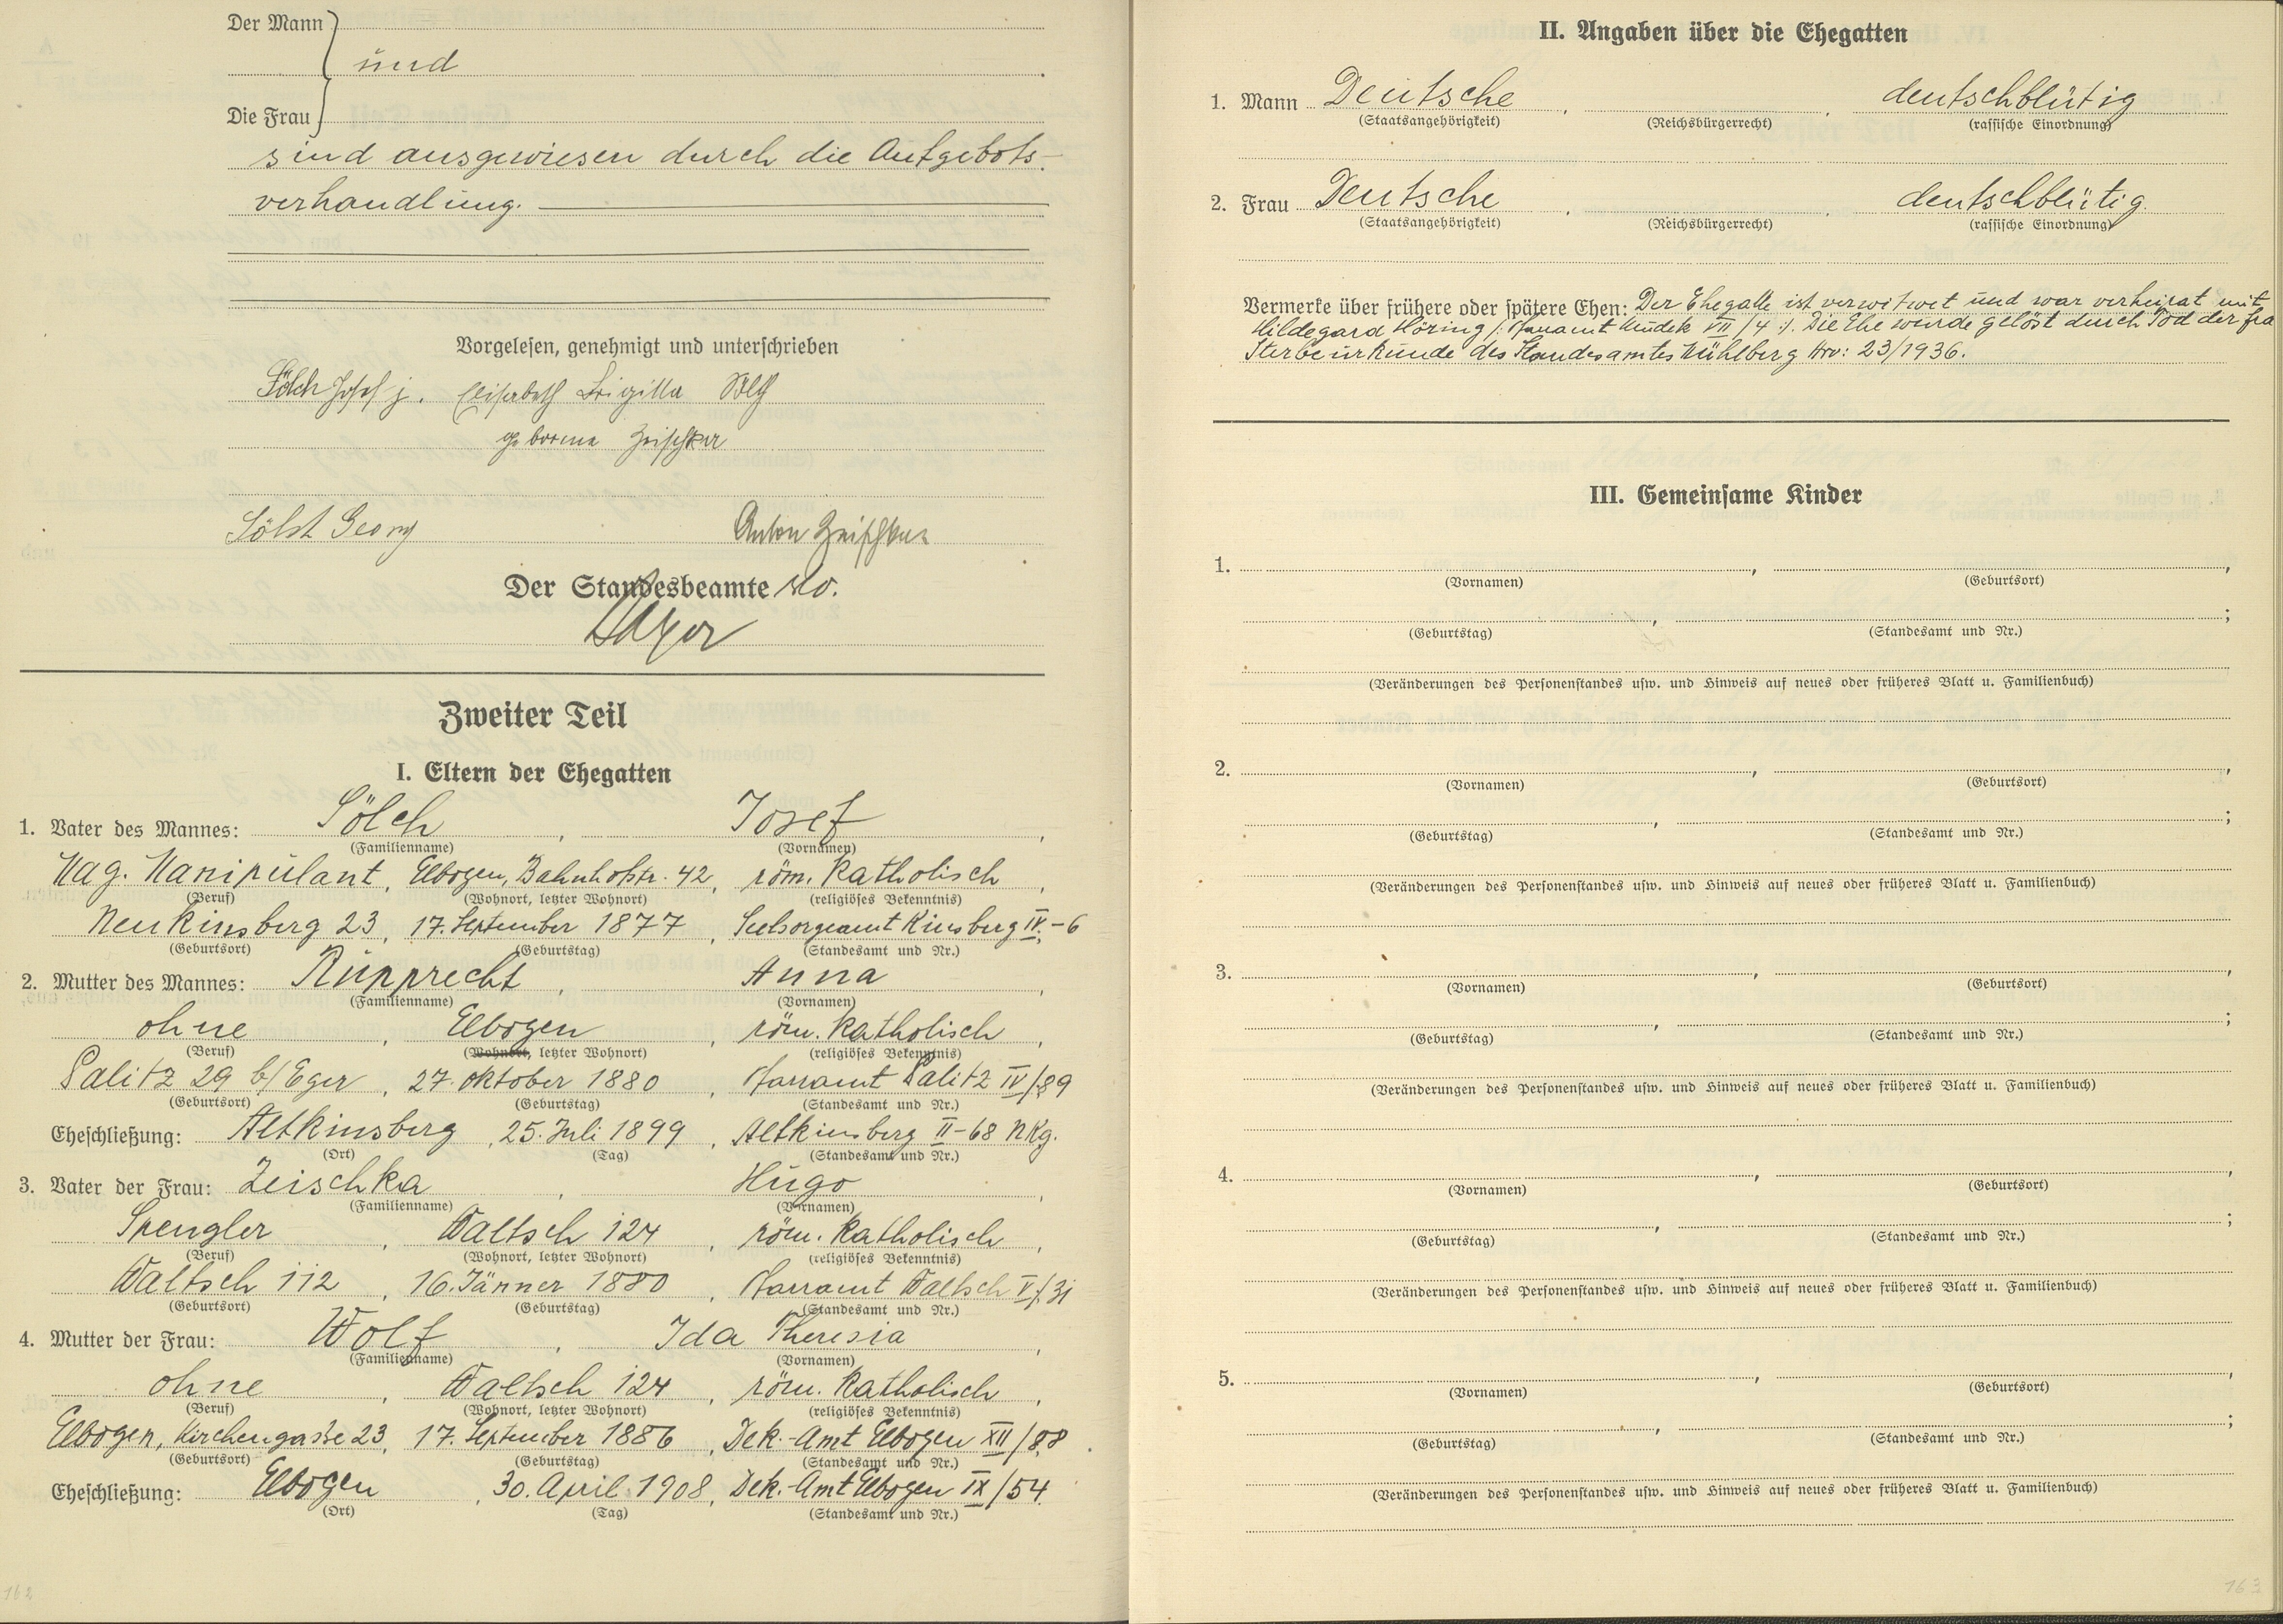 Der Mann
und
Die Frau
sind ausgewiesen durch die Aufgebots-
verhandlung.
Vorgelesen, genehmigt und unterschrieben
Sölch Josef j. Elisabeth Brigitta Sölch
geborene Zeischka
Sölch Georg Anton Zeischka
Der Standesbeamte
Zweiter Teil
I. Eltern der Ehegatten
1. Vater des Mannes: Sölch, Josef,
(Familienname) (Vornamen)
Mag. Manipulant, Elbogen, Bahnhofstr. 42, röm. katholisch,
(Beruf) (Wohnort, letzter Wohnort) (religiöses Bekenntnis)
Neukinsberg 23, 17. September 1877, Seelsorgeamt Kinsberg IV.-6
(Geburtsort) (Geburtstag) (Standesamt und Nr.)
2. Mutter des Mannes: Rupprecht, Anna,
(Familienname) (Vornamen)
ohne, Elbogen, röm. katholisch,
(Beruf) (Wohnort, letzter Wohnort) (religiöses Bekenntnis)
Palitz 29 b/Eger, 27. Oktober 1880, Pfarramt Palitz IV/89
(Geburtsort) (Geburtstag) (Standesamt und Nr.)
Eheschließung: Altkinsberg, 25. Juli 1899, Altkinsberg II-68 NKg.
(Ort) (Tag) (Standesamt und Nr.)
3. Vater der Frau: Zeischka, Hugo,
(Familienname) (Vornamen)
Spengler, Waltsch 124, röm. katholisch,
(Beruf) (Wohnort, letzter Wohnort) (religiöses Bekenntnis)
Waltsch 112, 16. Jänner 1880, Pfarramt Waltsch V/31
(Geburtsort) (Geburtstag) (Standesamt und Nr.)
4. Mutter der Frau: Wolf, Ida Theresia,
(Familienname) (Vornamen)
ohne, Waltsch 124, röm. katholisch,
(Beruf) (Wohnort, letzter Wohnort) (religiöses Bekenntnis)
Elbogen, Kirchengasse 23, 17. September 1886, Dek.-Amt Elbogen XII/88.
(Geburtsort) (Geburtstag) (Standesamt und Nr.)
Eheschließung: Elbogen, 30. April 1908, Dek.-Amt Elbogen IX/54.
(Ort) (Tag) (Standesamt und Nr.)
162
II. Angaben über die Ehegatten
1. Mann Deutsche, , deutschblütig
(Staatsangehörigkeit) (Reichsbürgerrecht) (rassische Einordnung)
2. Frau Deutsche, , deutschblütig.
(Staatsangehörigkeit) (Reichsbürgerrecht) (rassische Einordnung)
Vermerke über frühere oder spätere Ehen: Der Ehegatte ist verwitwet und war verheirat mit
Hildegard Höring /: Pfarramt Neudek VII/4 :/. Die Ehe wurde gelöst durch Tod der Fra
Sterbeurkunde des Standesamtes Mühlberg Nro: 23/1936.
III. Gemeinsame Kinder
1. , ,
(Vornamen) (Geburtsort)
, ;
(Geburtstag) (Standesamt und Nr.)
(Veränderungen des Personenstandes usw. und Hinweis auf neues oder früheres Blatt u. Familienbuch)
2. , ,
(Vornamen) (Geburtsort)
, ;
(Geburtstag) (Standesamt und Nr.)
(Veränderungen des Personenstandes usw. und Hinweis auf neues oder früheres Blatt u. Familienbuch)
3. , ,
(Vornamen) (Geburtsort)
, ;
(Geburtstag) (Standesamt und Nr.)
(Veränderungen des Personenstandes usw. und Hinweis auf neues oder früheres Blatt u. Familienbuch)
4. , ,
(Vornamen) (Geburtsort)
, ;
(Geburtstag) (Standesamt und Nr.)
(Veränderungen des Personenstandes usw. und Hinweis auf neues oder früheres Blatt u. Familienbuch)
5. , ,
(Vornamen) (Geburtsort)
, ;
(Geburtstag) (Standesamt und Nr.)
(Veränderungen des Personenstandes usw. und Hinweis auf neues oder früheres Blatt u. Familienbuch)
163